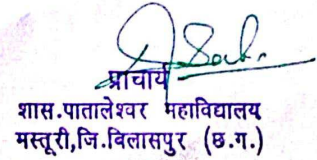 प्राचार्य
शास.पातालेश्वर महाविद्यालय
मस्तूरी,जि.बिलासपुर (छ.ग.)